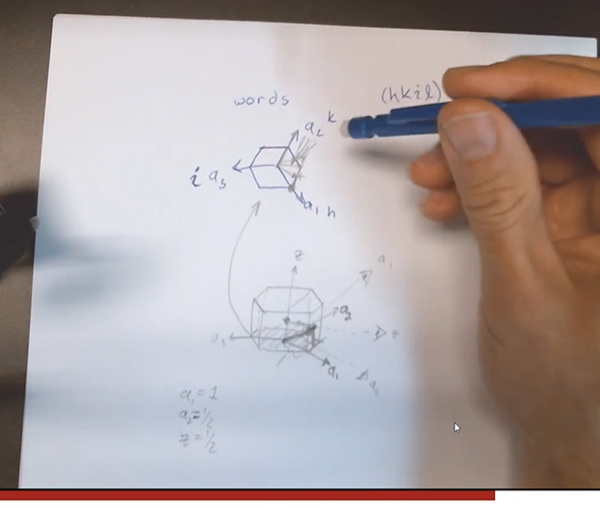 words
(hkil)
a₂ k
i a₃
a₁ h
z
a₁
a₂
a₃
a₁
a₁=1
a₂=1/2
z=1/2